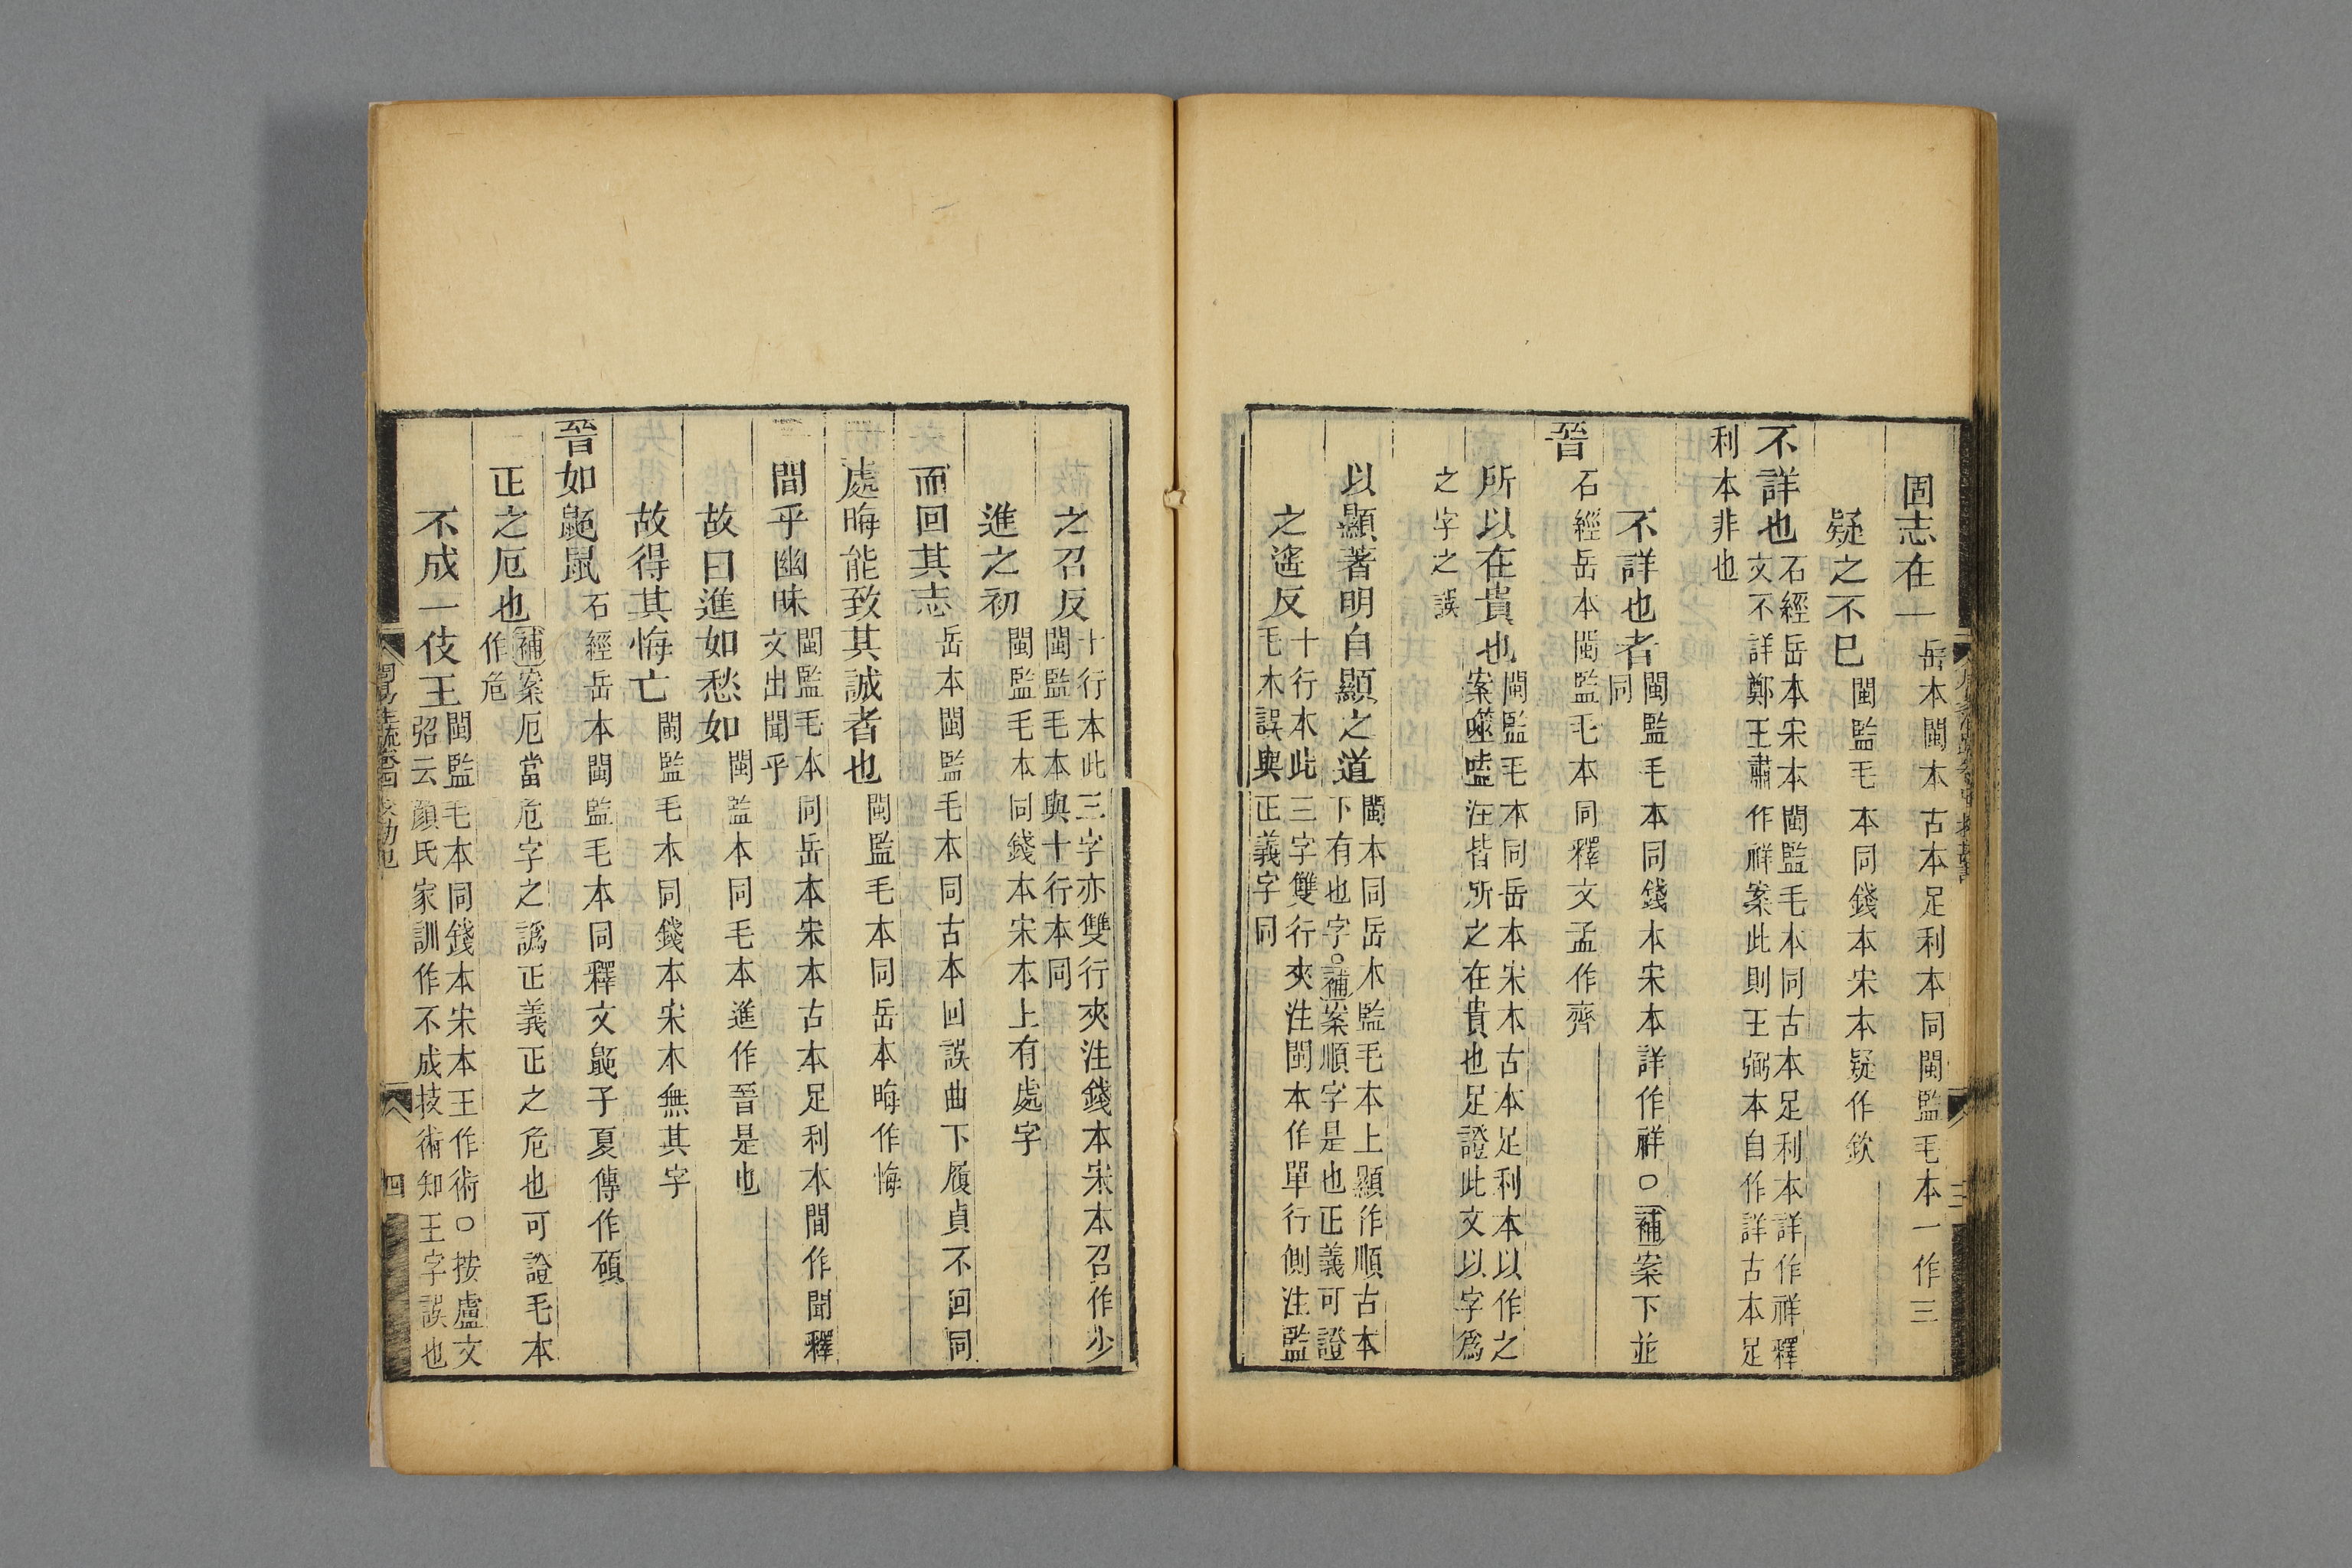 固志在一岳本閩本古本足利本同閩監毛本一作三
疑之不巳閩監毛本同錢本宋本疑作欽
不詳也石經岳本宋本閩監毛本同古本足利本詳作祥釋
文不詳鄭王肅作祥案此則王弼本自作詳古本足
利本非也
不詳也者閩監毛本同錢本宋本詳作祥○補案下並
同
晉石經岳本閩監毛本同釋文孟作齊
所以在貴也閩監毛本同岳本宋本古本足利本以作之
案噬嗑注皆所之在貴也足證此文以字爲
之字之誤
以顯著明自顯之道閩本同岳本監毛本上顯作順古本
下有也字○補案順字是也正義可證
之遙反十行本此三字雙行夾注閩本作單行側注監
毛本誤與正義字同
之召反十行本此三字亦雙行夾注錢本宋本召作少
閩監毛本與十行本同
進之初閩監毛本同錢本宋本上有處字
而回其志岳本閩監毛本同古本回誤曲下履貞不回同
處晦能致其誠者也閩監毛本同岳本晦作悔
間乎幽昧閩監毛本同岳本宋本古本足利本間作聞釋
文出聞乎
故曰進如愁如閩監本同毛本進作晉是也
故得其悔亡閩監毛本同錢本宋本無其字
晉如鼫鼠石經岳本閩監毛本同釋文鼫子夏傳作碩
正之厄也補案厄當危字之譌正義正之危也可證毛本
作危
不成一伎王閩監毛本同錢本宋本王作術○按盧文
弨云顏氏家訓作不成技術知王字誤也
四